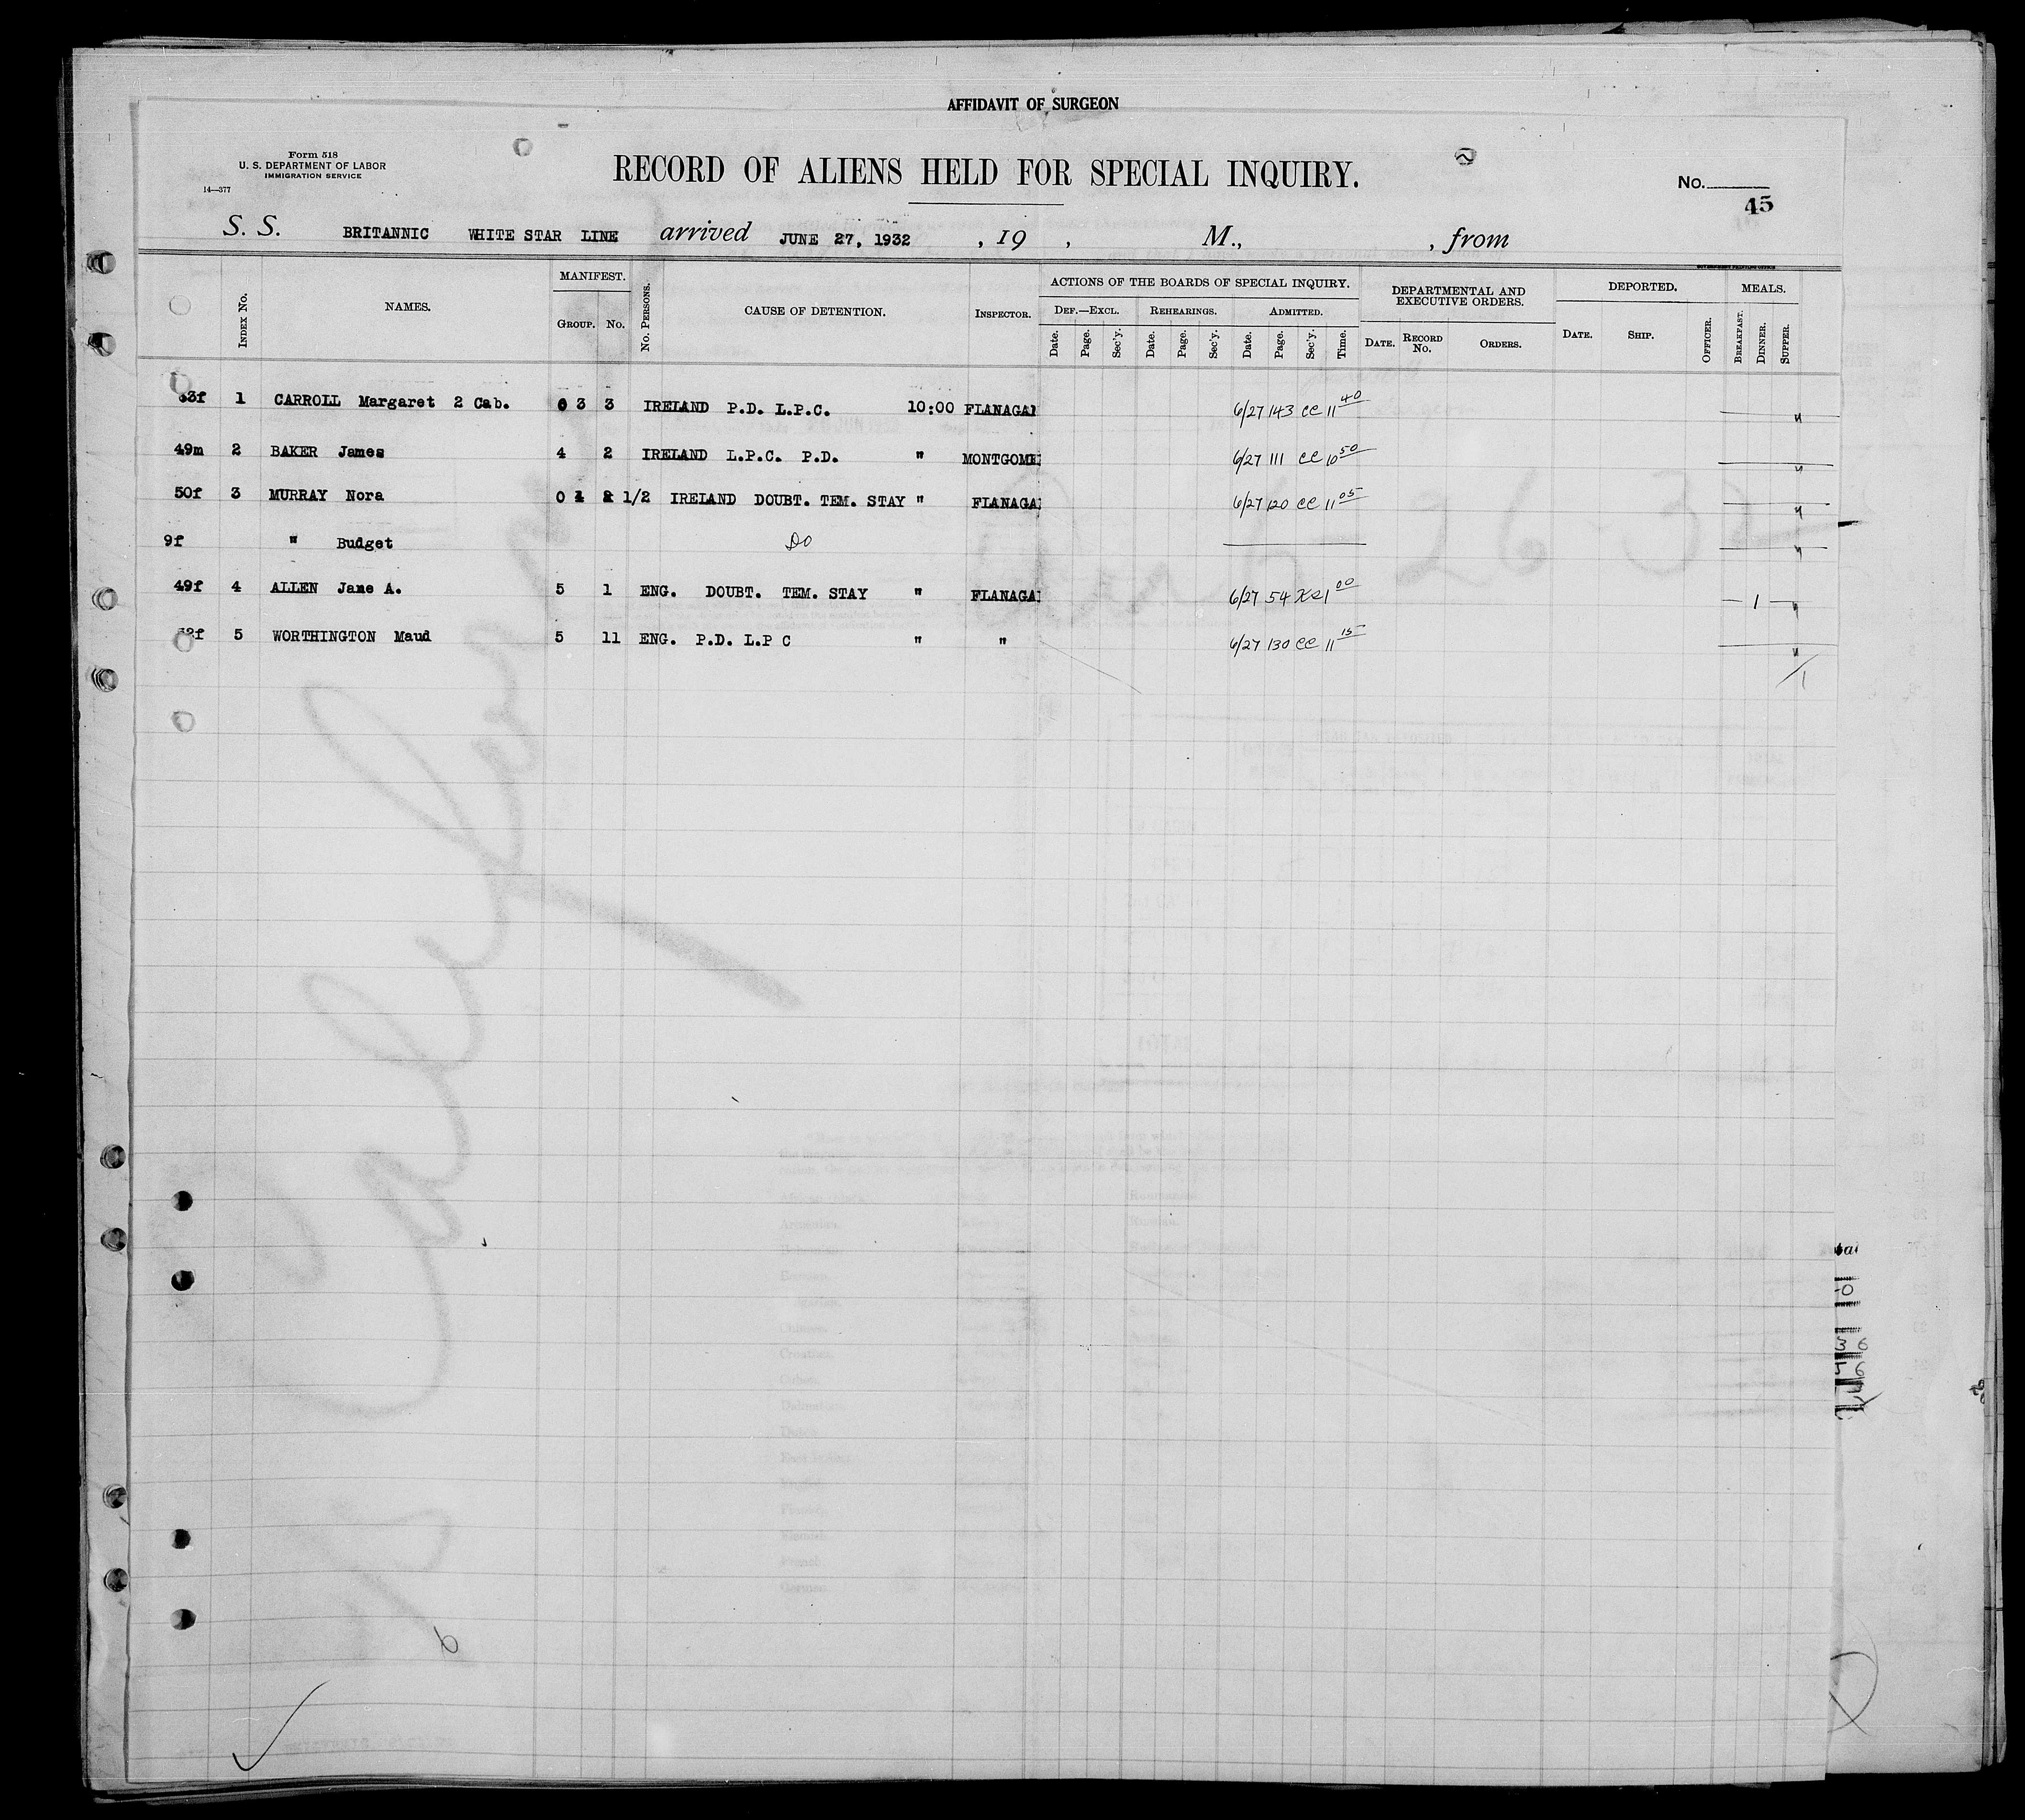 AFFIDAVIT OF SURGEON
Form 518
U. S. DEPARTMENT OF LABOR
IMMIGRATION SERVICE
14—377
RECORD OF ALIENS HELD FOR SPECIAL INQUIRY.
No.
45
S. S. BRITANNIC WHITE STAR LINE arrived JUNE 27, 1932 , 19 , M., , from
INDEX No. NAMES. MANIFEST. GROUP. No. No. PERSONS. CAUSE OF DETENTION. INSPECTOR. ACTIONS OF THE BOARDS OF SPECIAL INQUIRY. DEPARTMENTAL AND EXECUTIVE ORDERS. DEPORTED. MEALS.
DEF.—EXCL. REHEARINGS. ADMITTED.
Date. Page. Sec'y. Date. Page. Sec'y. Date. Page. Sec'y. Time. DATE. RECORD No. ORDERS. DATE. SHIP. OFFICER. BREAKFAST. DINNER. SUPPER.
3f 1 CARROLL Margaret 2 Cab. 3 3 IRELAND P.D. L.P.C. 10:00 FLANAGAN 6/27 143 CC 11 40
49m 2 BAKER James 4 2 IRELAND L.P.C. P.D. " MONTGOME 6/27 111 CC 10 50
50f 3 MURRAY Nora 0 4 2 1/2 IRELAND DOUBT. TEM. STAY " FLANAGA 6/27 120 CC 11 05
9f " Budget Do
49f 4 ALLEN Jane A. 5 1 ENG. DOUBT. TEM. STAY " FLANAGA 6/27 54 1 00 1
2f 5 WORTHINGTON Maud 5 11 ENG. P.D. L.P C " " 6/27 130 CC 11 15
1
6